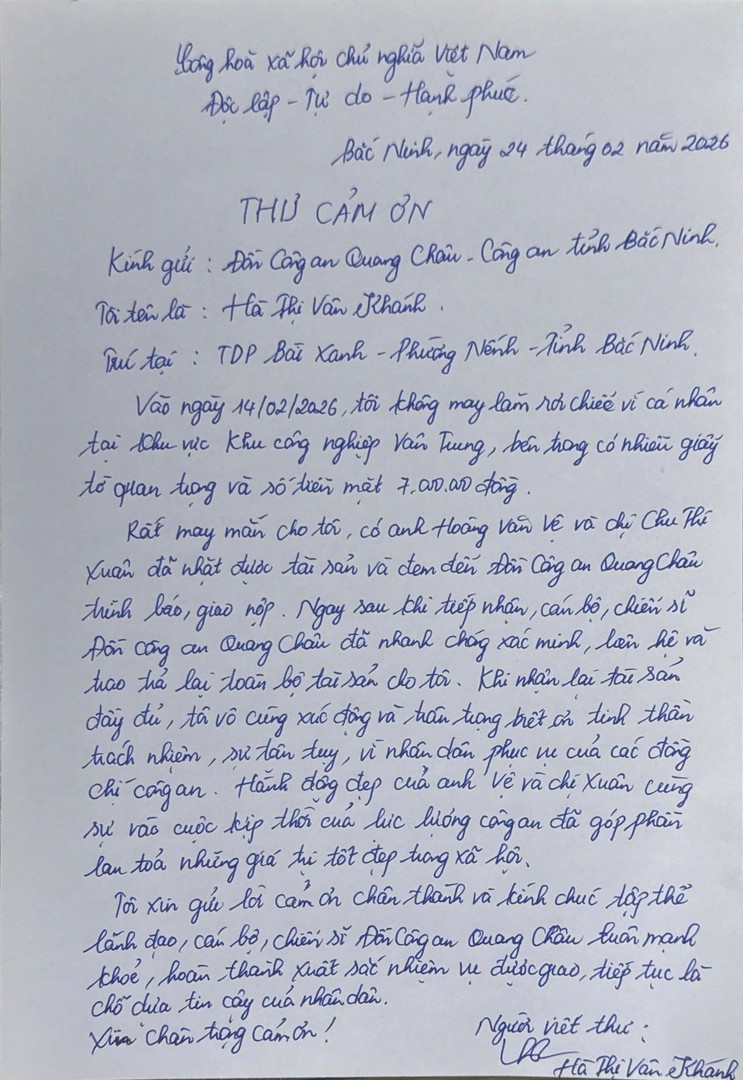 Cộng hoà xã hội chủ nghĩa Việt Nam
Độc lập - Tự do - Hạnh phúc.
Bắc Ninh, ngày 24 tháng 02 năm 2026
THƯ CẢM ƠN
Kính gửi : Đồn Công an Quang Châu - Công an tỉnh Bắc Ninh.
Tôi tên là : Hà Thị Vân Khánh.
Trú tại : TDP Bài Xanh - Phường Nếnh - Tỉnh Bắc Ninh.
Vào ngày 14/02/2026, tôi không may làm rơi chiếc ví cá nhân
tại khu vực Khu công nghiệp Vân Trung, bên trong có nhiều giấy
tờ quan trọng và số tiền mặt 7.000.000 đồng.
Rất may mắn cho tôi, có anh Hoàng Văn Vệ và chị Chu Thị
Xuân đã nhặt được tài sản và đem đến Đồn Công an Quang Châu
trình báo, giao nộp. Ngay sau khi tiếp nhận, cán bộ, chiến sĩ
Đồn công an Quang Châu đã nhanh chóng xác minh, liên hệ và
trao trả lại toàn bộ tài sản cho tôi. Khi nhận lại tài sản
đầy đủ, tôi vô cùng xúc động và trân trọng biết ơn tinh thần
trách nhiệm, sự tận tuỵ, vì nhân dân phục vụ của các đồng
chí công an. Hành động đẹp của anh Vệ và chị Xuân cùng
sự vào cuộc kịp thời của lực lượng công an đã góp phần
lan toả những giá trị tốt đẹp trong xã hội.
Tôi xin gửi lời cảm ơn chân thành và kính chúc tập thể
lãnh đạo, cán bộ, chiến sĩ Đồn Công an Quang Châu luôn mạnh
khoẻ, hoàn thành xuất sắc nhiệm vụ được giao, tiếp tục là
chỗ dựa tin cậy của nhân dân.
Xin chân trọng cảm ơn!
Người viết thư :
Hà Thị Vân Khánh